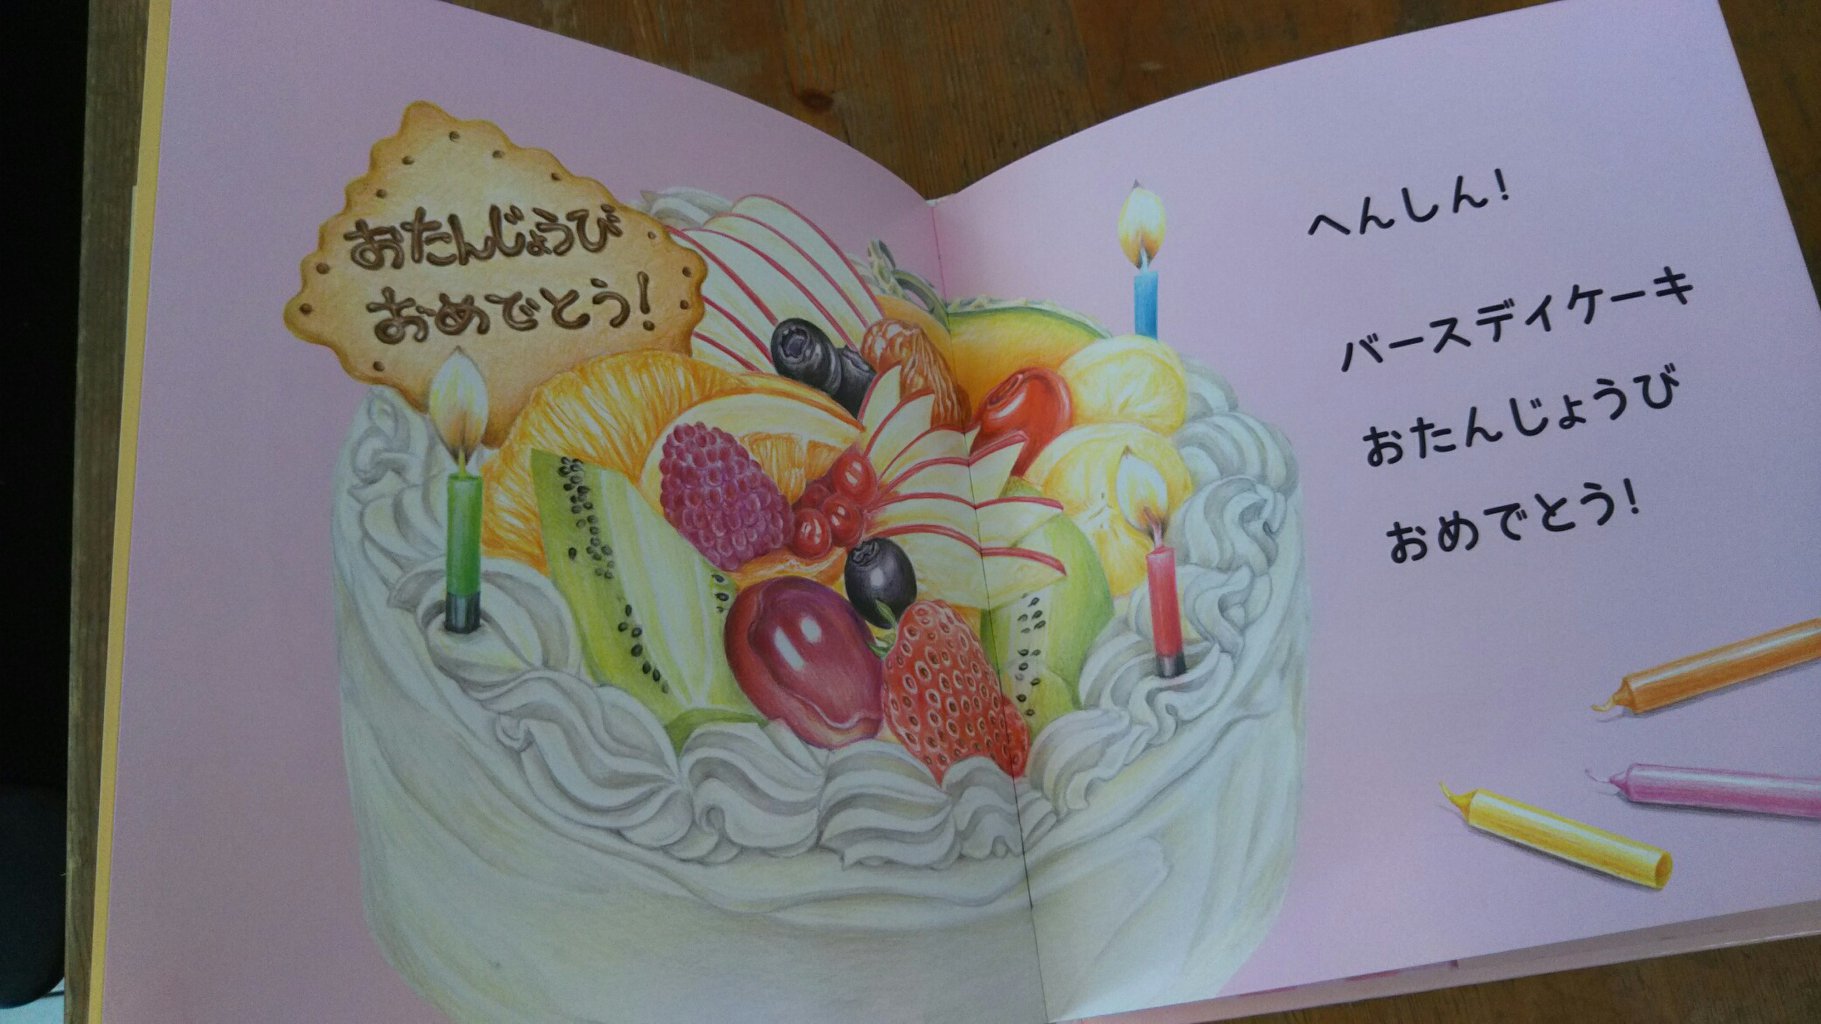 おたんじょうび
おめでとう!
へんしん!
バースデイケーキ
おたんじょうび
おめでとう!